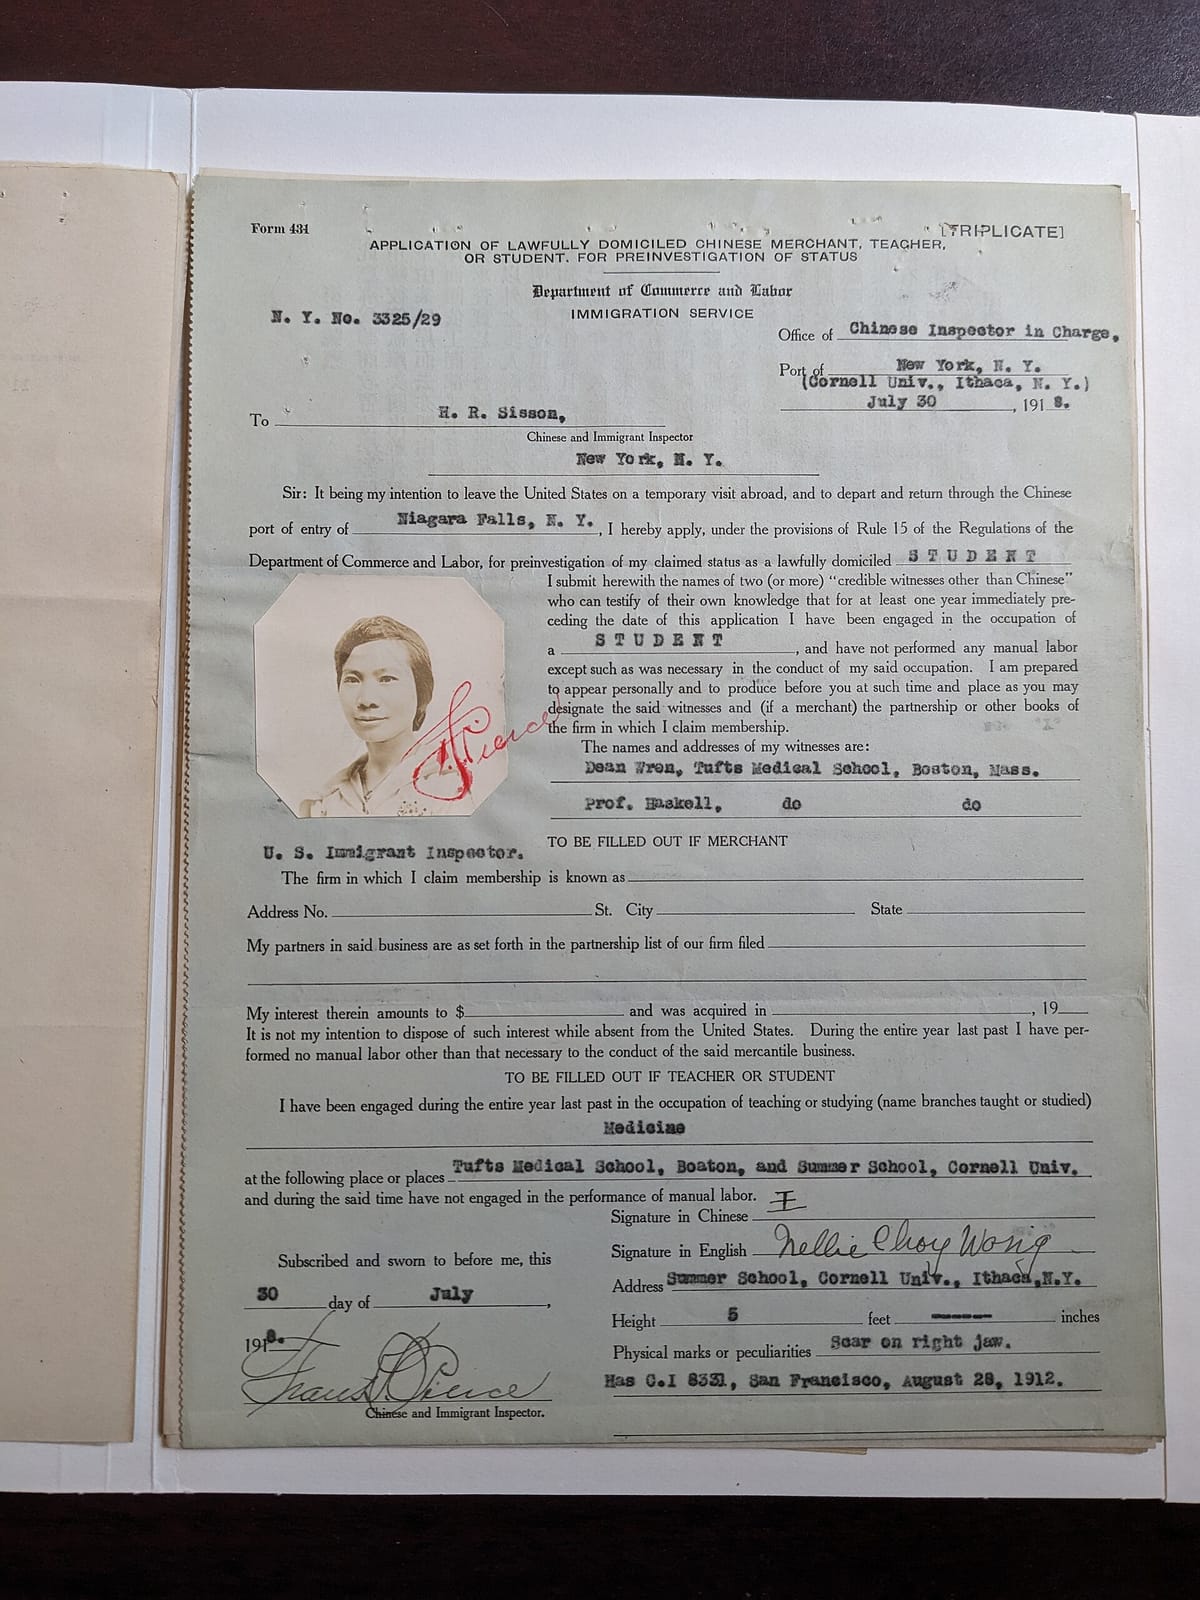 Form 431
[TRIPLICATE]
APPLICATION OF LAWFULLY DOMICILED CHINESE MERCHANT, TEACHER,
OR STUDENT, FOR PREINVESTIGATION OF STATUS
Department of Commerce and Labor
IMMIGRATION SERVICE
N. Y. No. 3325/29
Office of Chinese Inspector in Charge,
Port of New York, N. Y.
(Cornell Univ., Ithaca, N. Y.)
July 30, 1918.
To H. R. Sisson,
Chinese and Immigrant Inspector
New York, N. Y.
Sir: It being my intention to leave the United States on a temporary visit abroad, and to depart and return through the Chinese
port of entry of Niagara Falls, N. Y., I hereby apply, under the provisions of Rule 15 of the Regulations of the
Department of Commerce and Labor, for preinvestigation of my claimed status as a lawfully domiciled STUDENT
I submit herewith the names of two (or more) “credible witnesses other than Chinese”
who can testify of their own knowledge that for at least one year immediately pre-
ceding the date of this application I have been engaged in the occupation of
a STUDENT, and have not performed any manual labor
except such as was necessary in the conduct of my said occupation. I am prepared
to appear personally and to produce before you at such time and place as you may
designate the said witnesses and (if a merchant) the partnership or other books of
the firm in which I claim membership.
Pierce
The names and addresses of my witnesses are:
Dean Wren, Tufts Medical School, Boston, Mass.
Prof. Haskell, do do
U. S. Immigrant Inspector.
TO BE FILLED OUT IF MERCHANT
The firm in which I claim membership is known as
Address No. St. City State
My partners in said business are as set forth in the partnership list of our firm filed
My interest therein amounts to $ and was acquired in , 19
It is not my intention to dispose of such interest while absent from the United States. During the entire year last past I have per-
formed no manual labor other than that necessary to the conduct of the said mercantile business.
TO BE FILLED OUT IF TEACHER OR STUDENT
I have been engaged during the entire year last past in the occupation of teaching or studying (name branches taught or studied)
Medicine
at the following place or places Tufts Medical School, Boaton, and Summer School, Cornell Univ.
and during the said time have not engaged in the performance of manual labor.
Signature in Chinese
Signature in English Nellie Choy Wong
Subscribed and sworn to before me, this
Address Summer School, Cornell Univ., Ithaca, N.Y.
30 day of July,
Height 5 feet ----- inches
1918.
Physical marks or peculiarities Scar on right jaw.
Pierce
Has C.I 8331, San Francisco, August 28, 1912.
Chinese and Immigrant Inspector.